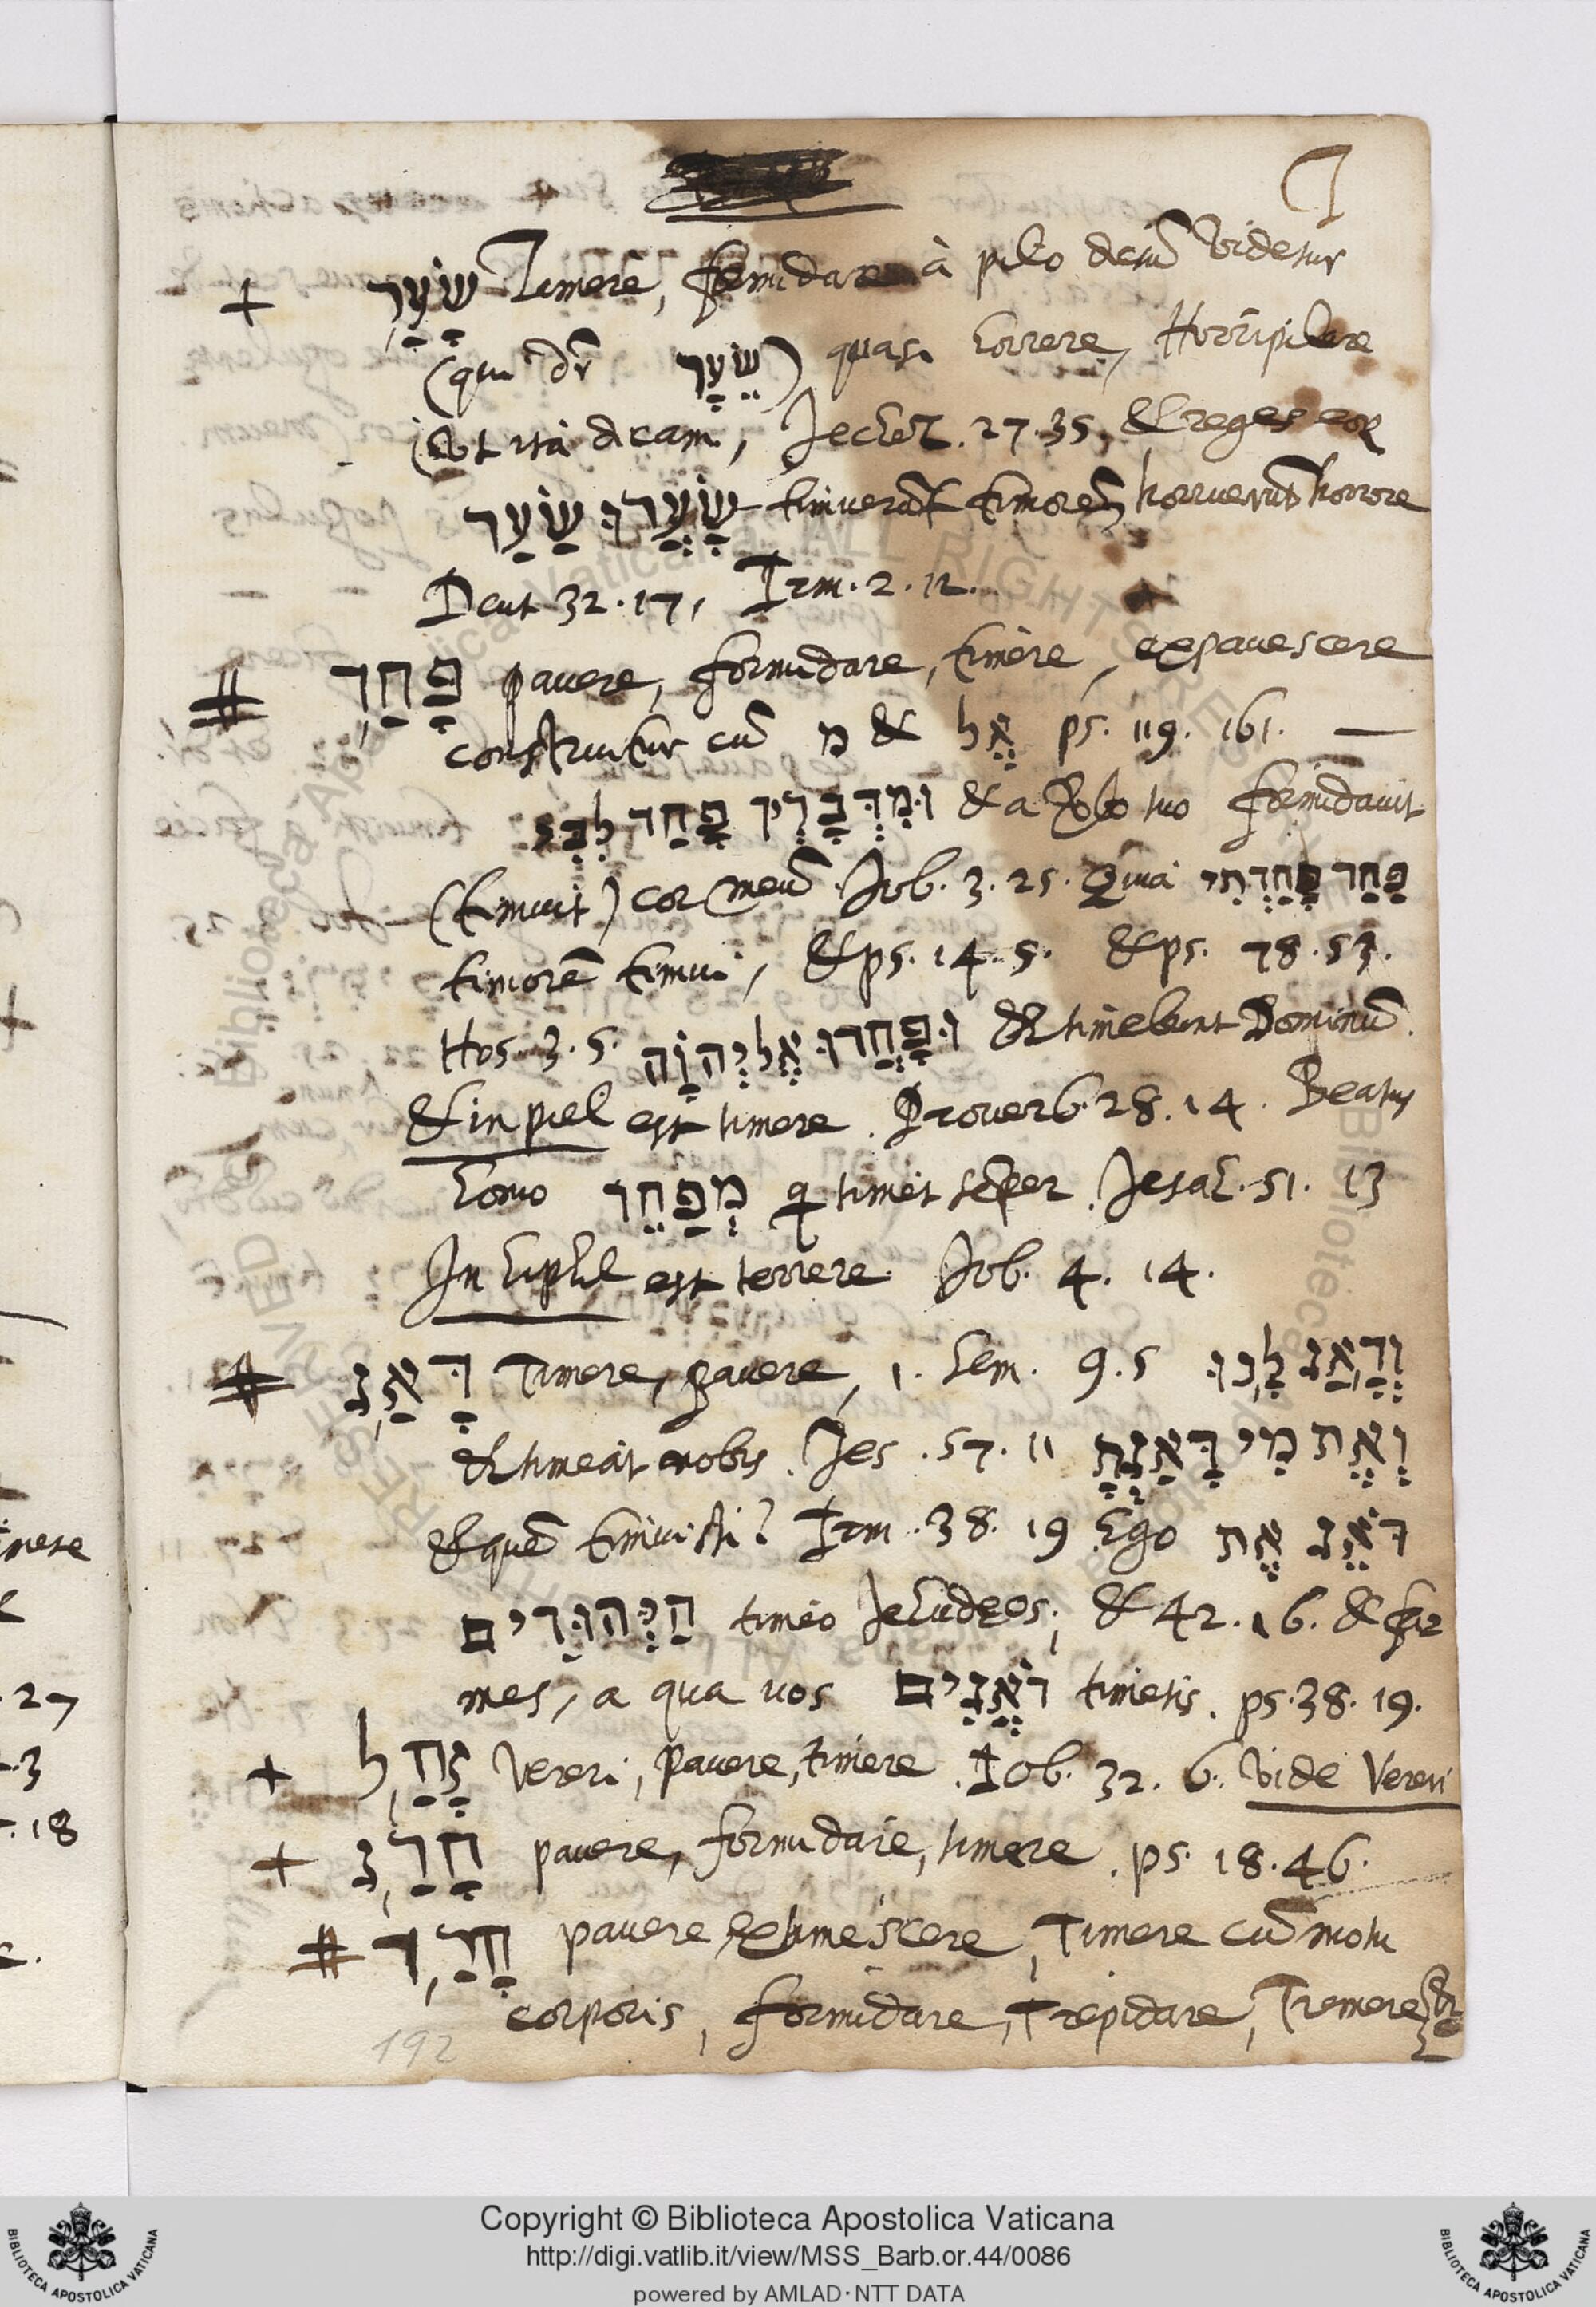 + שָׂעַר Timere, formidare à pilo dctũ videtur
(qui dr שֵׂעָר) quasi horrere, Horripilare
(Vt ità dicam, Jechez. 27.35, & reges eoꝝ
שָׂעֲרוּ שַׂעַר timuerũt timorẽ horruerũt horrore
Deut 32.17, Irm. 2.12.
# פָּחַד pauere, formidare, timere, expauescere
construitur cũ מִ & אֶל ps. 119. 161. —
וּמִדְּבָרֶיךָ פָּחַד לִבִּי & a uerbo tuo formidauit
(timuit) cor meũ. Job. 3. 25. Quia פַּחַד פָּחַדְתִּי
timorẽ timui, & ps. 14. 5. & ps. 78. 53.
Hos 3. 5. וּפָחֲדוּ אֶל יְהוָה & timebunt Dominũ.
& in piel est timere. Prouerb 28. 14. Beatus
homo מְפַחֵד q timet sẽper. Jesah. 51. 13
In hiphil est terrere. Job. 4. 14.
# דָּאַג Timere, pauere, 1. Sem. 9. 5 וְדָאַג לָנוּ
& timeat nobis. Jes. 57. 11 וְאֶת מִי דָּאַגְתְּ
& quẽ timuisti? Irm. 38. 19 Ego דֹּאֵג אֶת
הַיְּהוּדִים timeo Jehudeos; & 42. 16. & fa
mes, a qua uos דֹּאֲגִים timetis. ps. 38. 19.
+ זָחַל Vereri, pauere, timere. Iob. 32. 6. vide Vereri
+ חָרַג pauere, formidare, timere. ps. 18. 46.
# חָרַד pauere, extimescere, Timere cũ motu
corporis, formidare, Trepidare, Tremere
192
Copyright © Biblioteca Apostolica Vaticana
http://digi.vatlib.it/view/MSS_Barb.or.44/0086
powered by AMLAD·NTT DATA
BIBLIOTECA APOSTOLICA VATICANA
BIBLIOTECA APOSTOLICA VATICANA